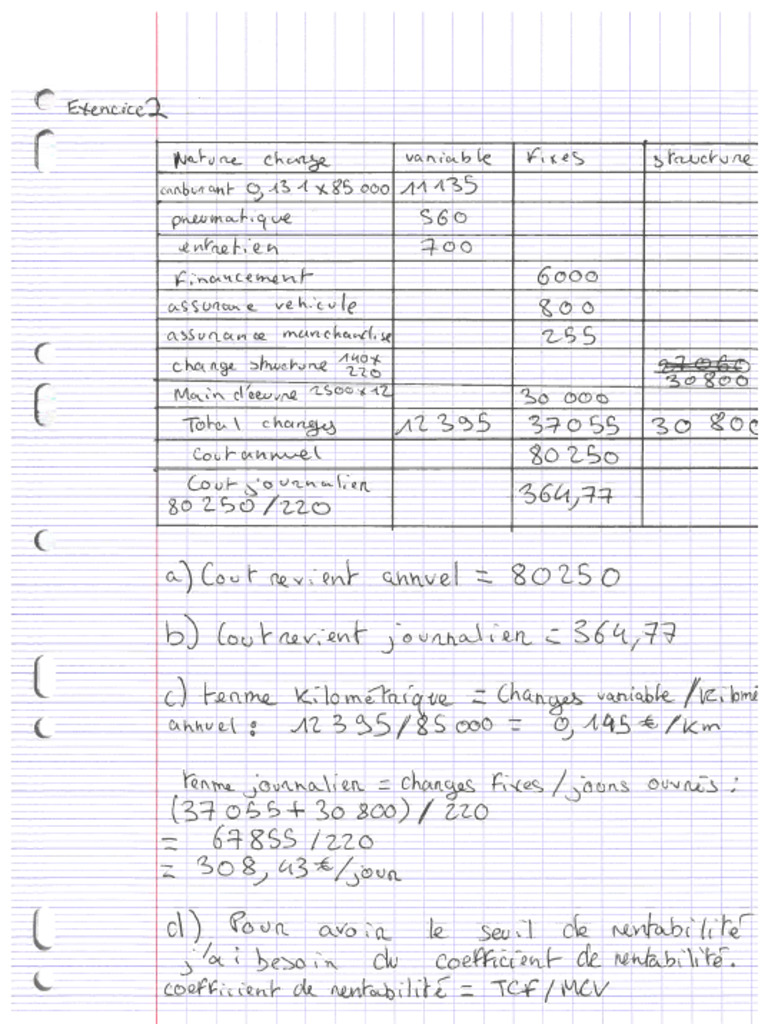 Exercice 2
Nature charge variable fixes structure
carburant 0,131x85 000 11135
pneumatique 560
entretien 700
Financement 6000
assurance vehicule 800
assurance marchandise 255
charge structure 140x 220 27060 30 800
Main d'oeuvre 2500x12 30 000
Total charges 12 395 37 055 30 800
Cout annuel 80 250
Cout journalier 80 250/220 364,77
a) Cout revient annuel = 80250
b) Cout revient journalier = 364,77
c) terme Kilométrique = Charges variable / Kilomé
annuel : 12 395/85 000 = 0,145 €/Km
terme journalier = charges fixes / jours ouvrés :
(37 055 + 30 800) / 220
= 67855 /220
= 308,43 €/jour
d) Pour avoir le seuil de rentabilité
j'ai besoin du coefficient de rentabilité.
coefficient de rentabilité = TCF / MCV